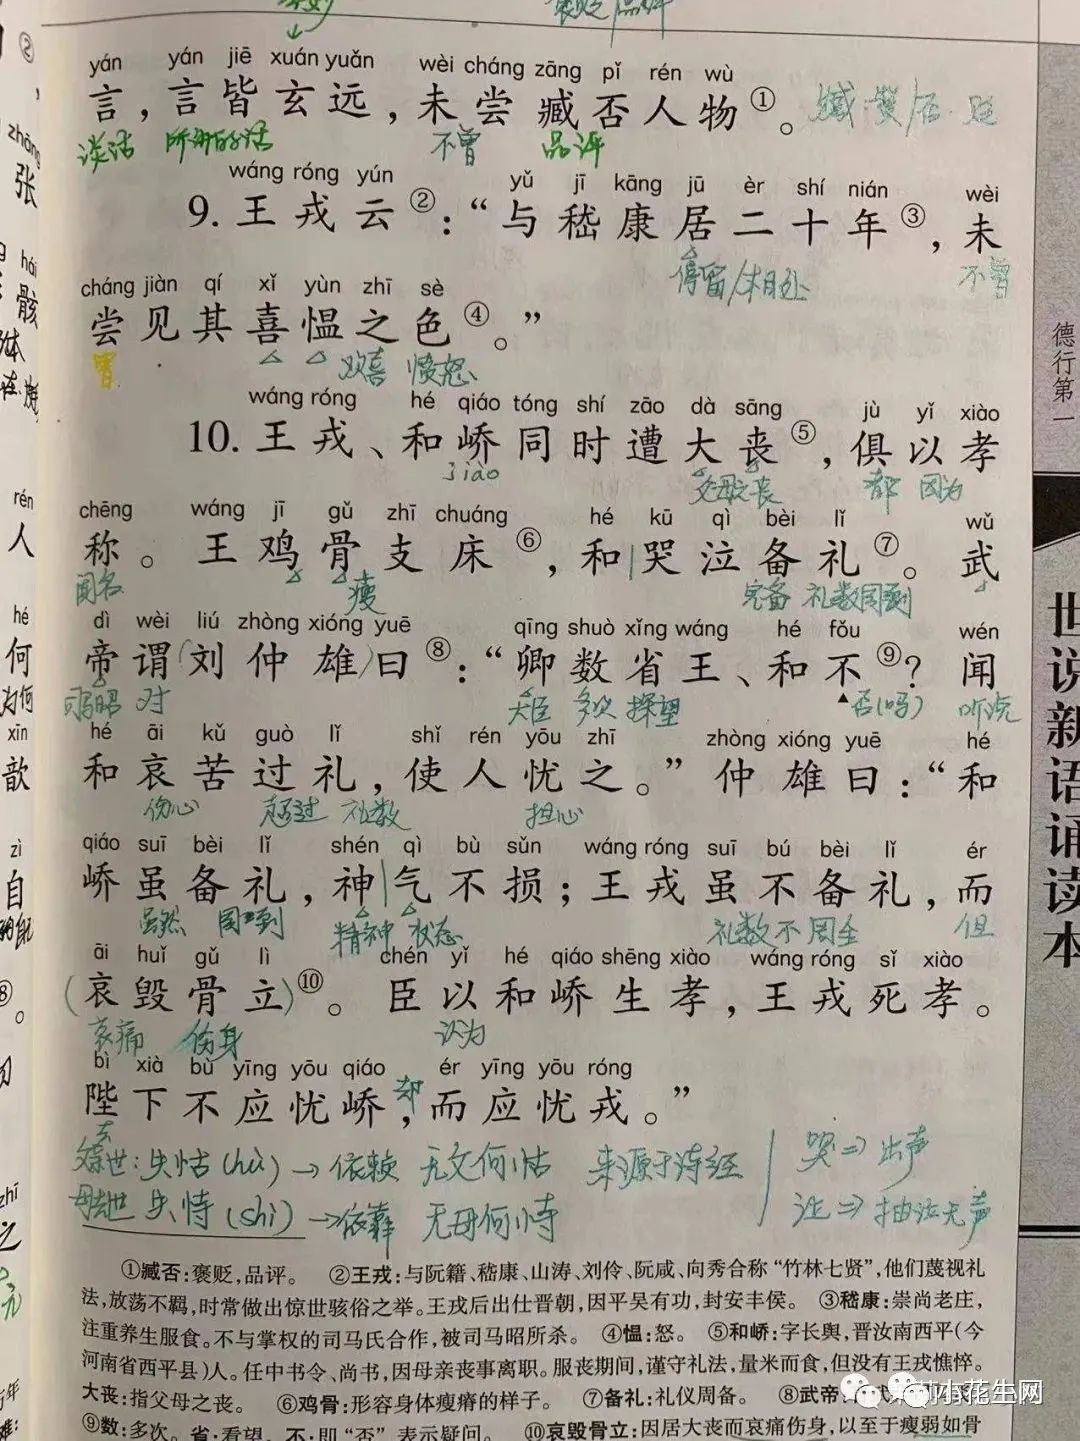 yán yán jiē xuán yuǎn wèi cháng zāng pǐ rén wù
言，言皆玄远，未尝臧否人物①。
谈话 所讲的话 不曾 品评
wáng róng yún yǔ jī kāng jū èr shí nián wèi
9. 王戎云②：“与嵇康居二十年③，未
停留/相处 不曾
cháng jiàn qí xǐ yùn zhī sè
尝见其喜愠之色④。”
曾 欢喜 愤怒
wáng róng hé qiáo tóng shí zāo dà sāng jù yǐ xiào
10. 王戎、和峤同时遭大丧⑤，俱以孝
jiào 父母之丧 都 因为
chēng wáng jī gǔ zhī chuáng hé kū qì bèi lǐ wǔ
称。王鸡骨支床⑥，和哭泣备礼⑦。武
闻名 瘦 完备 礼数周到
dì wèi liú zhòng xióng yuē qīng shuò xǐng wáng hé fǒu wén
帝谓(刘仲雄)曰⑧：“卿数省王、和不⑨？闻
对 大臣 多次 探望 否(吗) 听说
hé āi kǔ guò lǐ shǐ rén yōu zhī zhòng xióng yuē hé
和哀苦过礼，使人忧之。”仲雄曰：“和
伤心 超过 礼数 担心
qiáo suī bèi lǐ shén qì bù sǔn wáng róng suī bú bèi lǐ ér
峤虽备礼，神气不损；王戎虽不备礼，而
虽然 周到 精神 状态 礼数不周全 但
āi huǐ gǔ lì chén yǐ hé qiáo shēng xiào wáng róng sǐ xiào
(哀毁骨立)⑩。臣以和峤生孝，王戎死孝。
哀痛 伤身 认为
bì xià bù yīng yōu qiáo ér yīng yōu róng
陛下不应忧峤，而应忧戎。”
却
父去世：失怙(hù)→依赖 无父何怙 来源于诗经 哭⇒出声
母去世 失恃(shì)→依靠 无母何恃 泣⇒抽泣无声
①臧否：褒贬，品评。 ②王戎：与阮籍、嵇康、山涛、刘伶、阮咸、向秀合称“竹林七贤”，他们蔑视礼
法，放荡不羁，时常做出惊世骇俗之举。王戎后出仕晋朝，因平吴有功，封安丰侯。 ③嵇康：崇尚老庄，
注重养生服食。不与掌权的司马氏合作，被司马昭所杀。 ④愠：怒。 ⑤和峤：字长舆，晋汝南西平(今
河南省西平县)人。任中书令、尚书，因母亲丧事离职。服丧期间，谨守礼法，量米而食，但没有王戎憔悴。
大丧：指父母之丧。 ⑥鸡骨：形容身体瘦瘠的样子。 ⑦备礼：礼仪周备。 ⑧武帝
⑨数：多次。省：看望。不：即“否”，表示疑问。 ⑩哀毁骨立：因居大丧而哀痛伤身，以至于瘦弱如骨
德行第一
世说新语诵读本
小花生网
②
zhāng
张
hái
骸
rén
人
hé
何
为何
xīn
歆
zì
自
⑧。
zhī
之